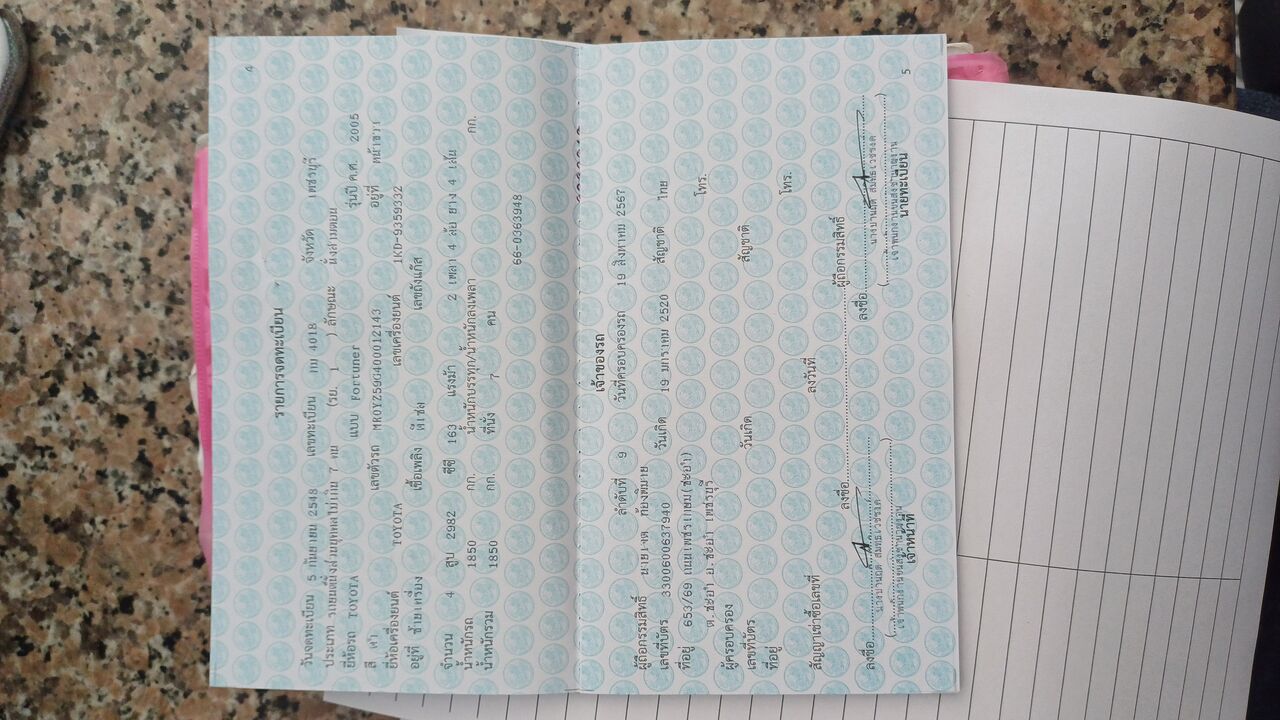 4
รายการจดทะเบียน
วันจดทะเบียน 5 กันยายน 2548 เลขทะเบียน กม 4018 จังหวัด เพชรบุรี
ประเภท รถยนต์นั่งส่วนบุคคลไม่เกิน 7 คน (รย. 1 ) ลักษณะ นั่งสามตอน
ยี่ห้อรถ TOYOTA แบบ Fortuner รุ่นปี ค.ศ. 2005
สี ดำ เลขตัวรถ MR0YZ59G400012143 อยู่ที่ หน้าขวา
ยี่ห้อเครื่องยนต์ TOYOTA เลขเครื่องยนต์ 1KD-9359332
อยู่ที่ ซ้ายเครื่อง เชื้อเพลิง ดีเซล เลขถังแก๊ส
จำนวน 4 สูบ 2982 ซีซี 163 แรงม้า 2 เพลา 4 ล้อ ยาง 4 เส้น
น้ำหนักรถ 1850 กก. น้ำหนักบรรทุก/น้ำหนักลงเพลา กก.
น้ำหนักรวม 1850 กก. ที่นั่ง 7 คน
66-0363948
เจ้าของรถ
ลำดับที่ 9 วันที่ครอบครองรถ 19 สิงหาคม 2567
ผู้ถือกรรมสิทธิ์ นาย
เลขที่บัตร 3300600637940 วันเกิด 19 มกราคม 2520 สัญชาติ ไทย
ที่อยู่ 653/69 ถนนเพชรเกษม(ชะอำ) โทร.
ต.ชะอำ อ.ชะอำ เพชรบุรี
ผู้ครอบครอง
เลขที่บัตร วันเกิด สัญชาติ
ที่อยู่ โทร.
สัญญาเช่าซื้อเลขที่ ลงวันที่
ลงชื่อ ผู้ถือกรรมสิทธิ์
ลงชื่อ ลงชื่อ
เจ้าหน้าที่ นายทะเบียน
5